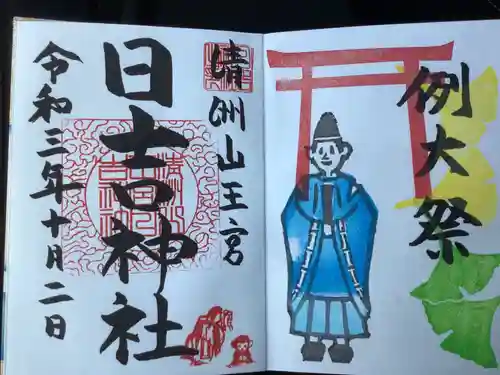 例大祭
清洲山王宮
日吉神社
令和三年十月二日